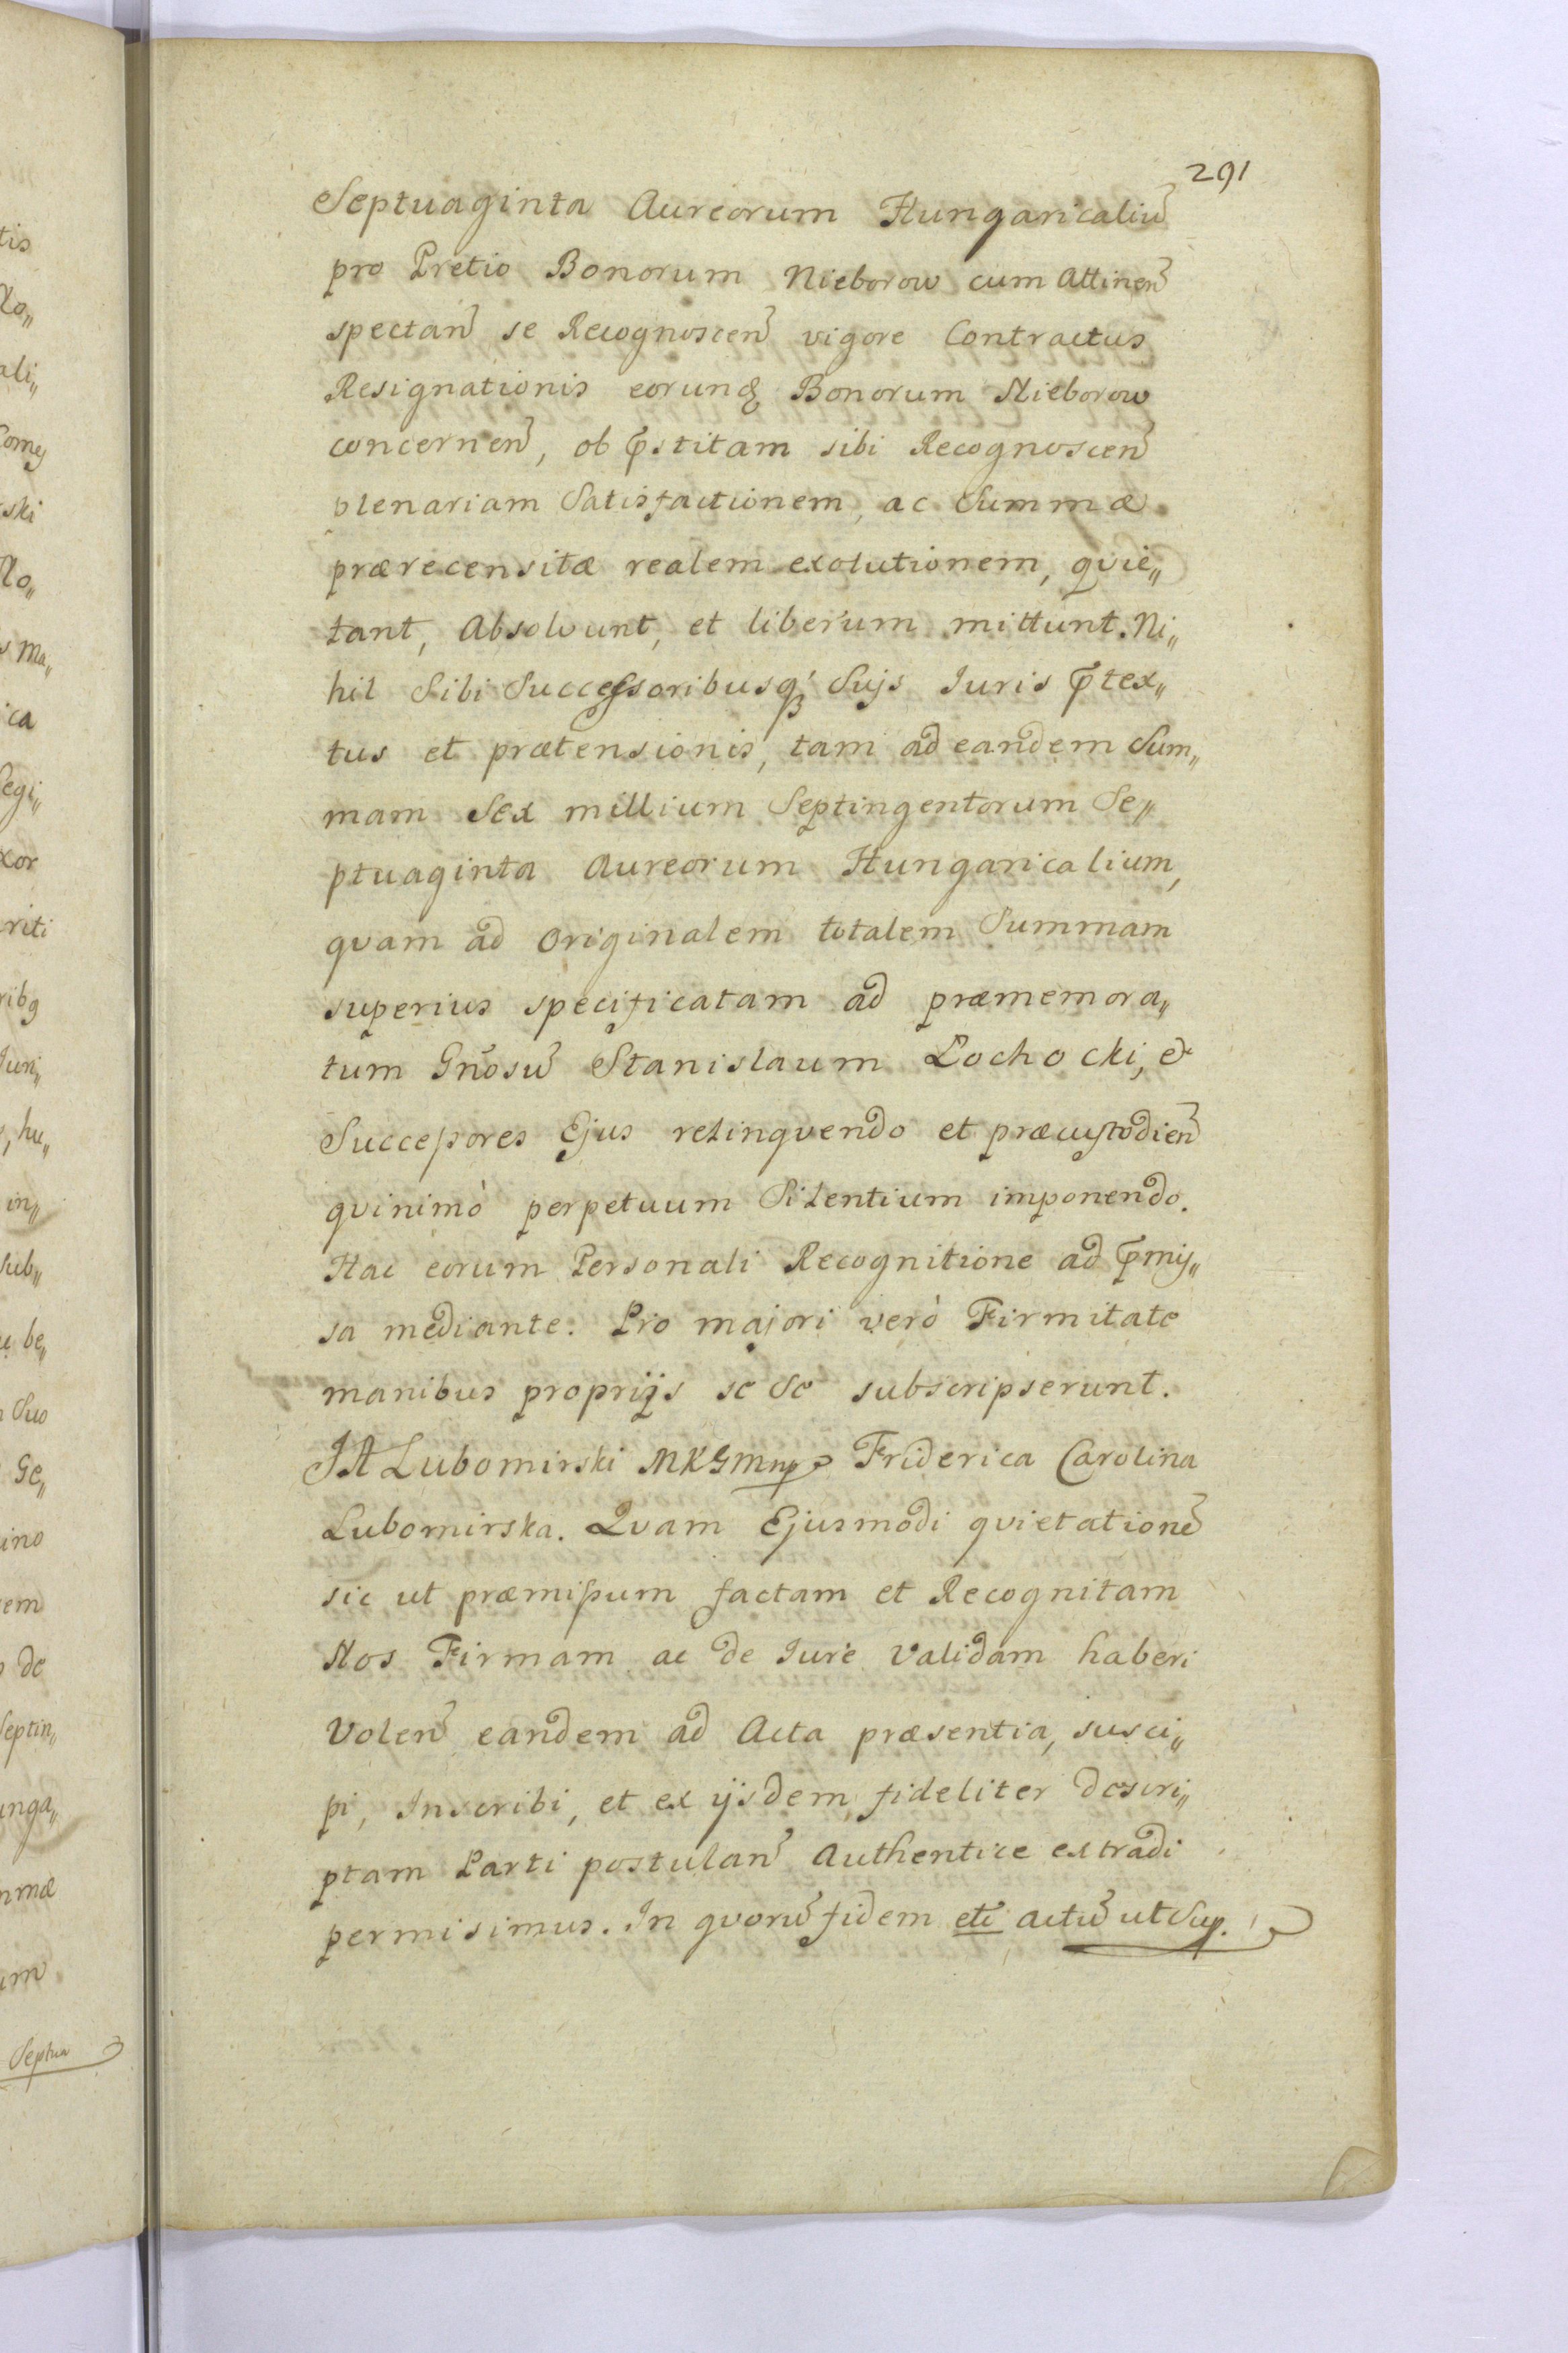 291
Septuaginta Aureorum Hungaricaliũ
pro Pretio Bonorum Nieborow cum Attineñ
spectañ se Recognosceñ vigore Contractus
Resignationis eorunq Bonorum Nieborow
concerneñ, ob p̃stitam sibi Recognosceñ
plenariam Satisfactionem, ac Summæ
prærecensitæ realem exolutionem, qvie„
tant, Absolvunt, et liberum mittunt. Ni„
hil Sibi Successoribusq́ Sujs Juris p̃tex„
tus et prætensionis, tam ad eandem Sum„
mam Sex millium Septingentorum Se„
ptuaginta Aureorum Hungaricalium,
qvam ad Originalem totalem Summam
superius specificatam ad præmemora„
tum Gñosũ Stanislaum Lochocki, et
Successores Ejus relinqvendo et præcustodieñ
qvinimò perpetuum Silentium imponendo.
Hac eorum Personali Recognitione ad p̃mis„
sa mediante. Pro majori verò Firmitate
manibus proprijs se Se subscripserunt.
JA Lubomirski MKGMmp Friderica Carolina
Lubomirska. Qvam Ejusmodi qvietationẽ
sic ut præmissum factam et Recognitam
Nos Firmam ac de Jure Validam haberi
Voleñ eandem ad Acta præsentia, susci„
pi, Inscribi, et ex ijsdem fideliter descri„
ptam Parti postulañ Authentice extradi
permisimus. In qvorũ fidem etc̃ actũ ut Sup.
tis
ali„
ski
s Ma„
ica
riti
Juri„
, hu„
in„
Sub„
be„
Suo
Ge„
ino
em
de
Septin„
unga„
mæ
um
Septua